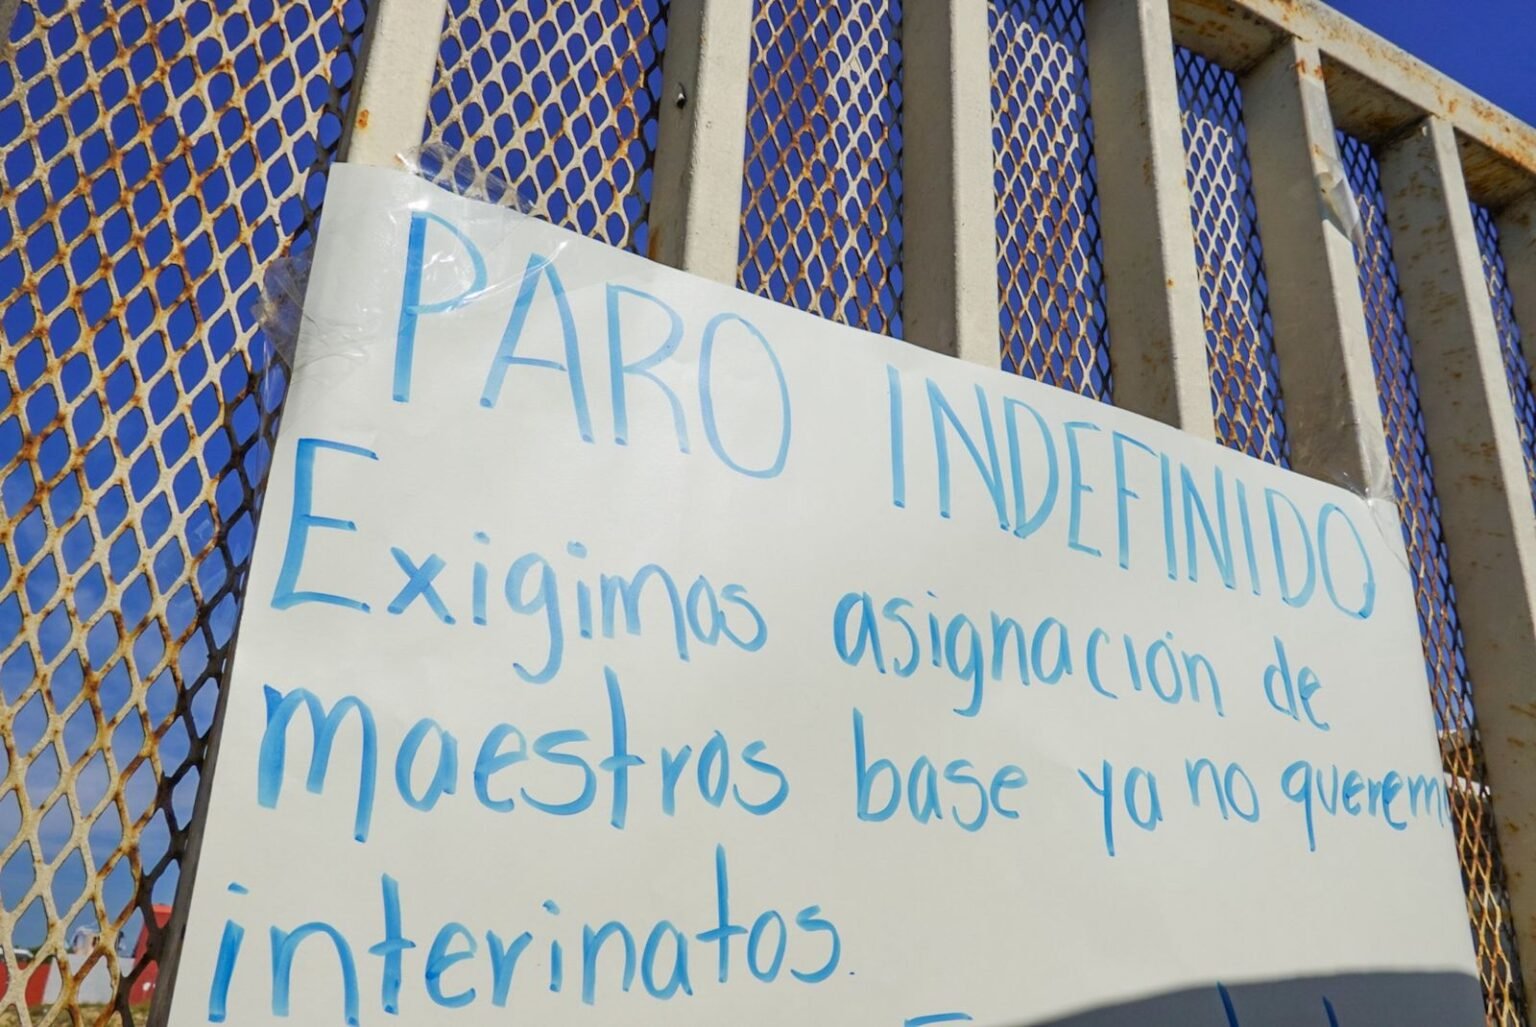 PARO INDEFINIDO
Exigimos asignación de
maestros base ya no querem
interinatos.